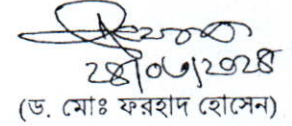 ২৪/০৬/২০২৪
(ড. মোঃ ফরহাদ হোসেন)